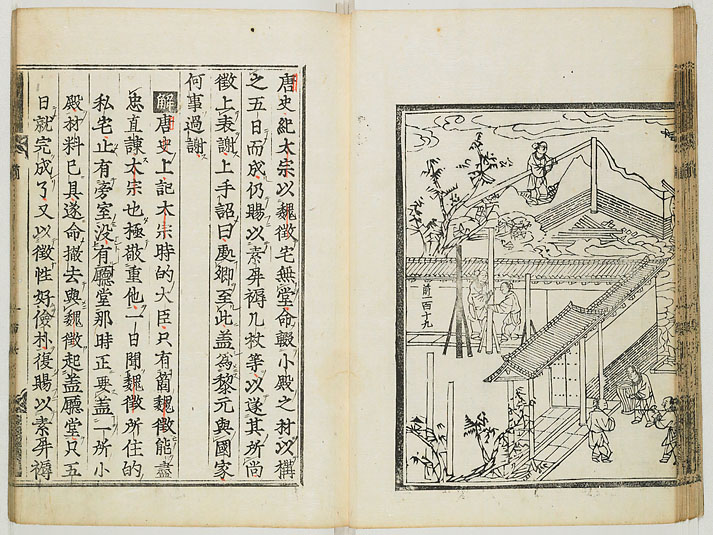 前一百十九
唐史紀太宗以魏徵宅無堂命輟小殿之材以搆
之五日而成仍賜以素屏褥几杖等以遂其所尚
徵上表謝上手詔曰處卿至此盖爲黎元與國家
何事過謝
解唐史上記太宗時的大臣只有箇魏徵能盡
忠直諫太宗也極敬重他一日聞魏徵所住的
私宅止有旁室沒有廳堂那時正要盖一所小
殿材料已具遂命撤去與魏徵起盖廳堂只五
日就完成了又以徵性好儉朴復賜以素屏褥